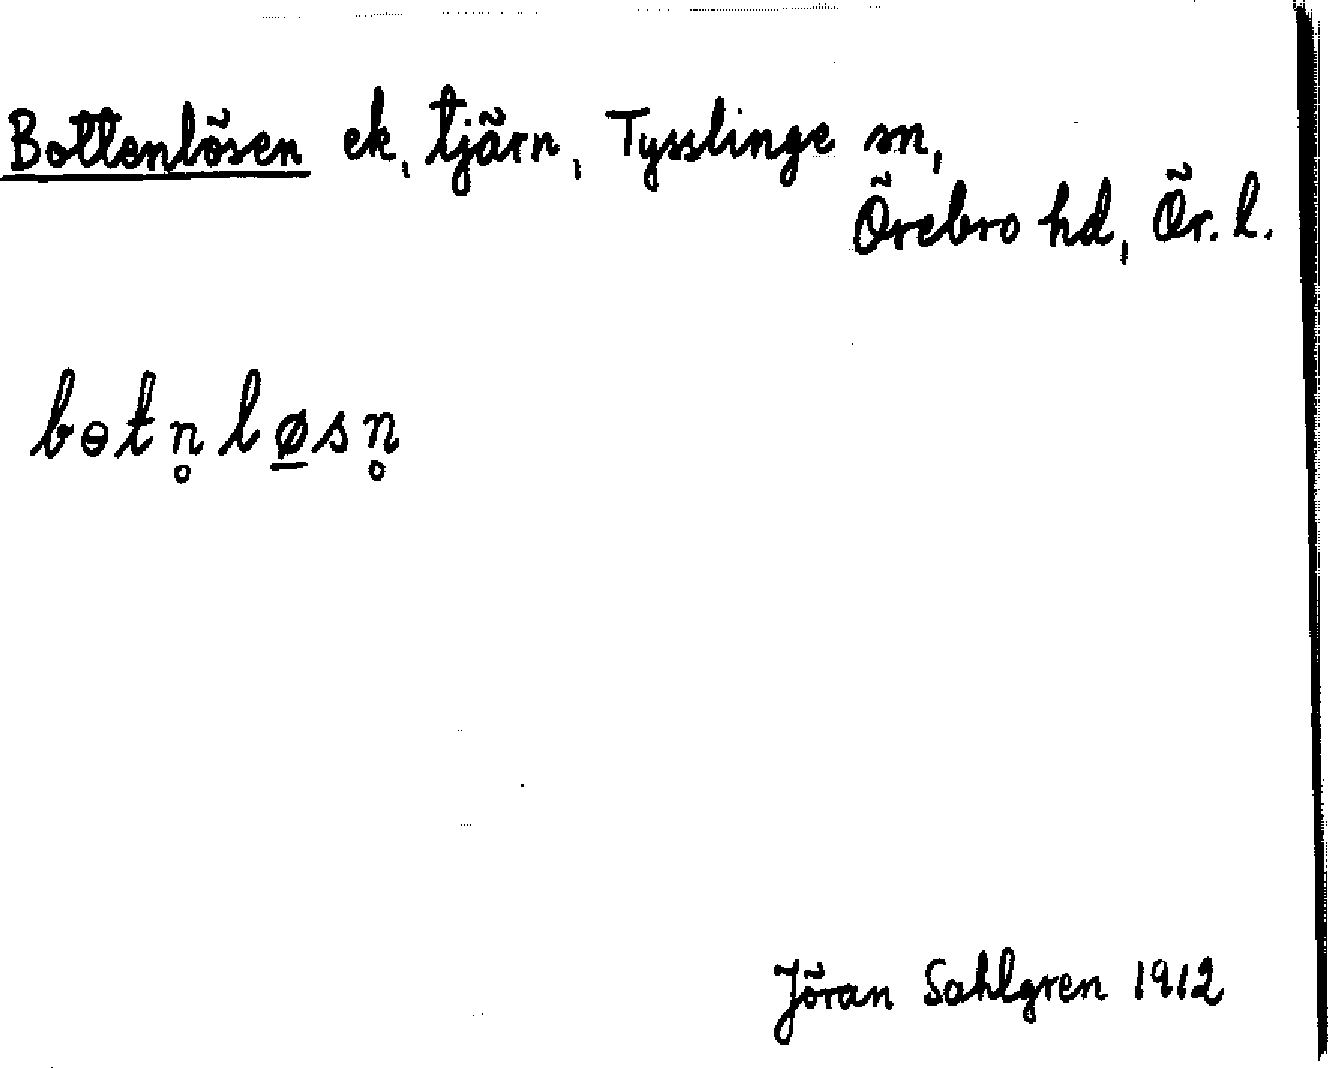 Bottenlösen ek, tjärn, Tysslinge sn,
Örebro hd, Ör. l.
bɵtn̥lø̲sn̥
Jöran Sahlgren 1912